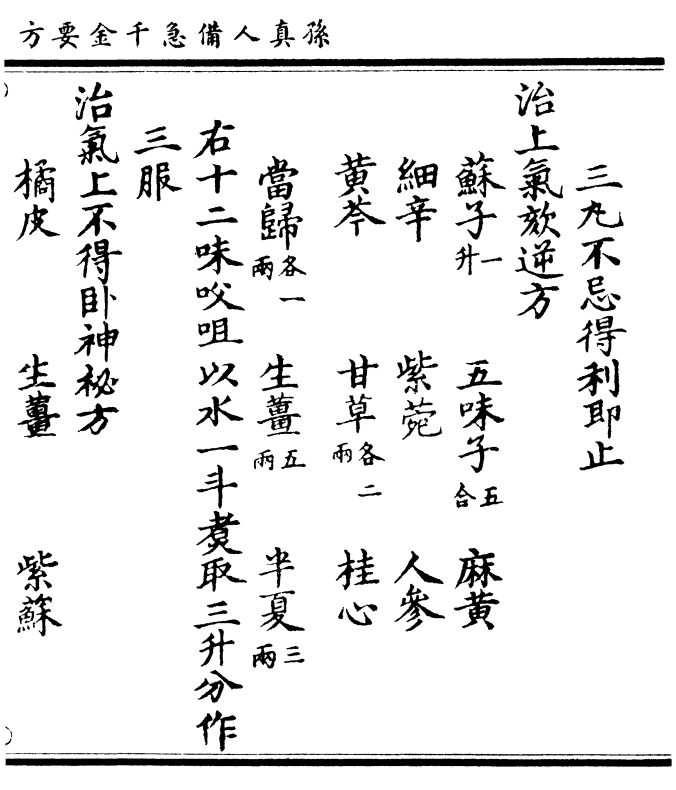 孫真人備急千金要方
三丸不忌得利即止
治上氣欬逆方
蘇子一升 五味子五合 麻黃
細辛 紫菀 人參
黃芩 甘草各二兩 桂心
當歸各一兩 生薑五兩 半夏三兩
右十二味㕮咀以水一斗煑取三升分作
三服
治氣上不得卧神秘方
橘皮 生薑 紫蘇